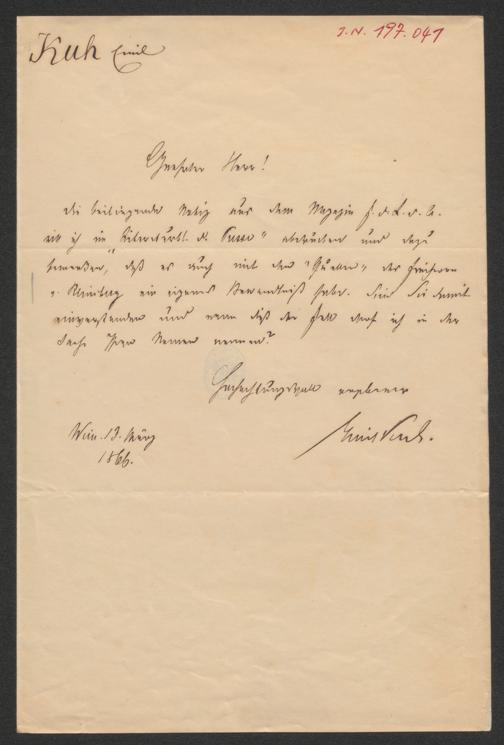 Kuh Emil
I.N. 197.041
Geehrter Herr!
die beiliegende Notiz aus dem Magazin f. d. L. d. A.
will ich im Literaturbl. d. "Presse" abdrucken und dazu
bemerken, daß es auch mit den "Quellen" des Freiherrn
v. ein eigenes Bewandtniß habe. Sind Sie damit
einverstanden und wenn dieß der Fall darf ich in der
Sache Ihren Namen nennen?
Hochachtungsvoll ergebener
Emil Kuh.
Wien. 13. März
1866.